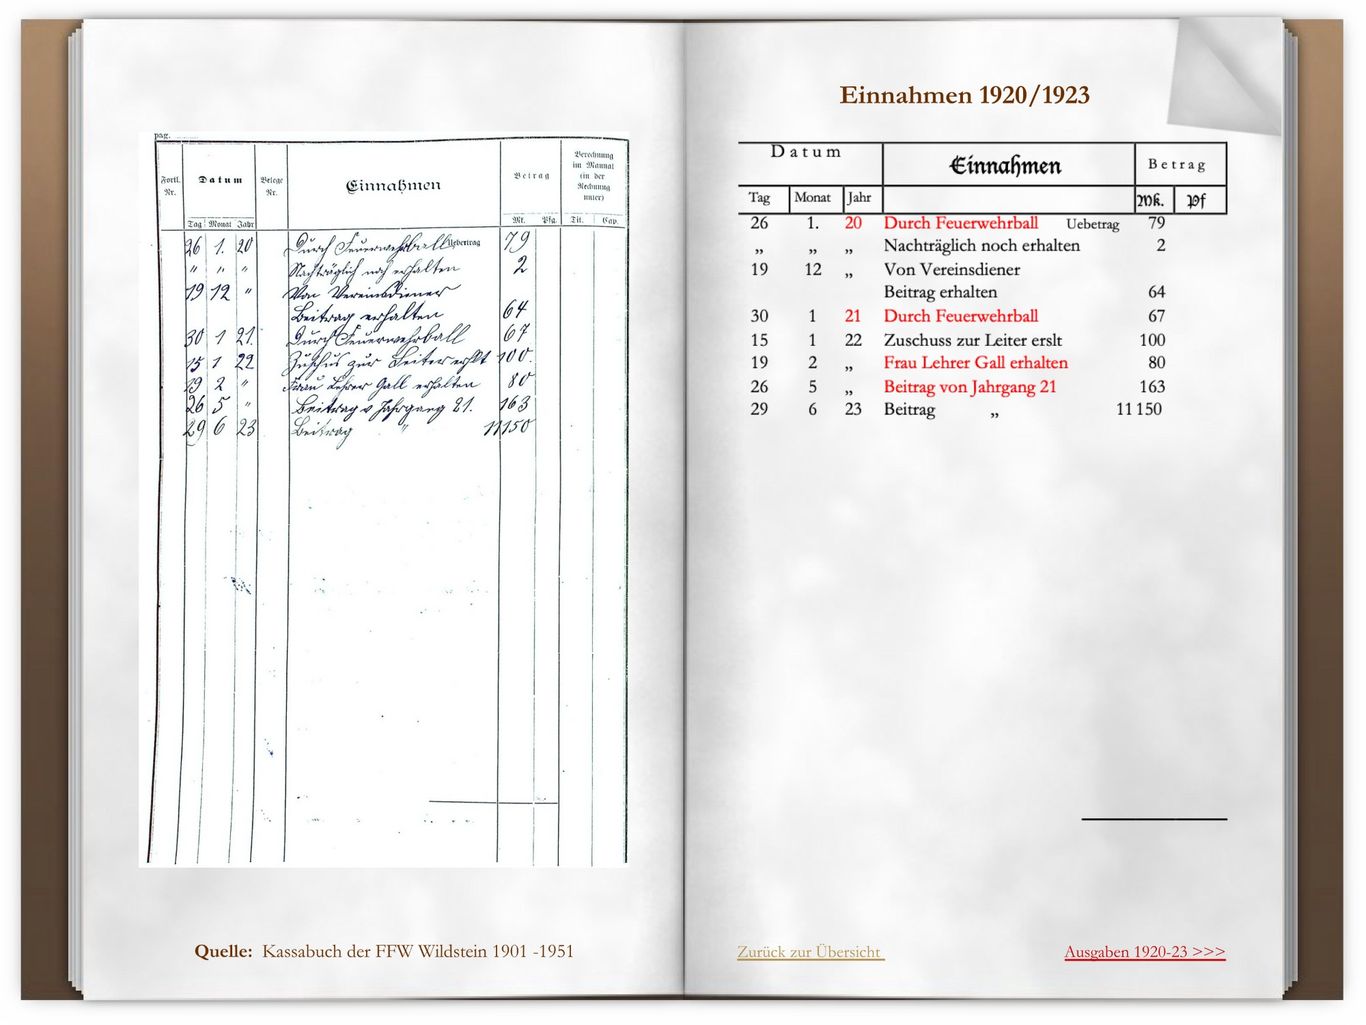 pag.
Fortl. Nr. Datum Belege Nr. Einnahmen Betrag Berechnung im Manual (in der Rechnung unter)
Tag Monat Jahr Mk. Pfg. Tit. Cap.
26 1. 20 Durch Feuerwehrball Uebertrag 79
" " " Nachträglich noch erhalten 2
19 12 " Von Vereinsdiener
Beitrag erhalten 64
30 1 21. Durch Feuerwehrball 67
15 1 22 Zuschus zur Leiter erhlt 100.
19 2 " Frau Lehrer Gall erhalten 80
26 5 " Beitrag v Jahrgang 21. 163
29 6 23 Beitrag " 11150
Quelle: Kassabuch der FFW Wildstein 1901 -1951
Einnahmen 1920/1923
Datum Einnahmen Betrag
Tag Monat Jahr Mk. Pf
26 1. 20 Durch Feuerwehrball Uebetrag 79
„ „ „ Nachträglich noch erhalten 2
19 12 „ Von Vereinsdiener
Beitrag erhalten 64
30 1 21 Durch Feuerwehrball 67
15 1 22 Zuschuss zur Leiter erslt 100
19 2 „ Frau Lehrer Gall erhalten 80
26 5 „ Beitrag von Jahrgang 21 163
29 6 23 Beitrag „ 11150
Zurück zur Übersicht
Ausgaben 1920-23 >>>